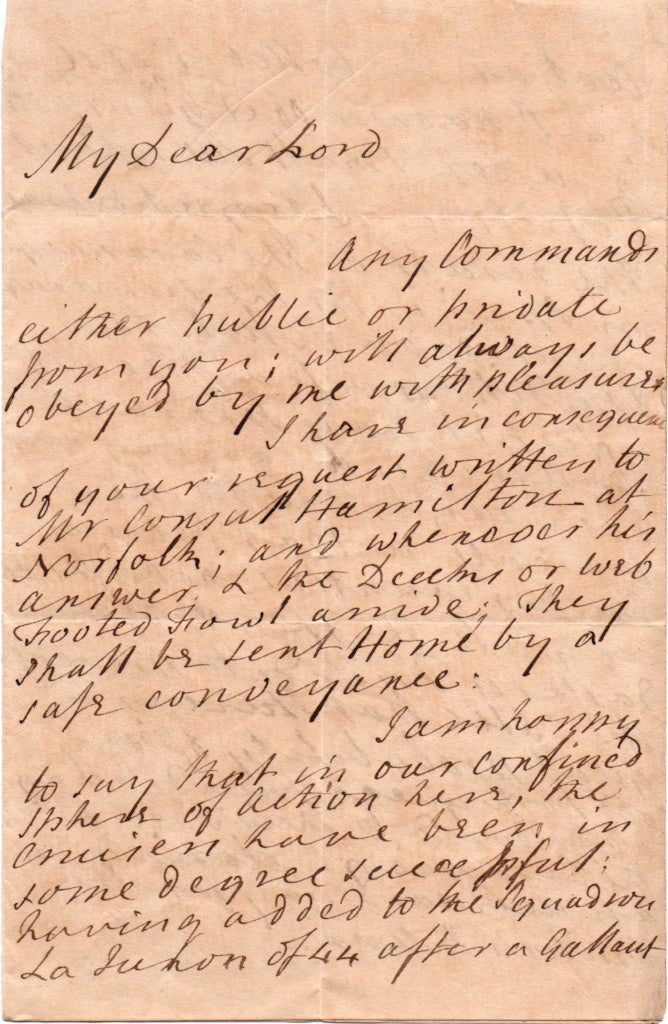 My Dear Lord
Any Commands
either public or private
from you; will always be
obeyed by me with pleasure,
I have in consequence
of your request written to
Mr Consul Hamilton at
Norfolk; and whenever his
answer & the Ducks or web
Footed Fowl arrive; They
shall be sent Home by a
safe conveyance:
I am happy
to say that in our confined
sphere of Action here, the
Cruisers have been in
some degree successful:
having added to the Squadron
La Junon of 44 after a Gallant